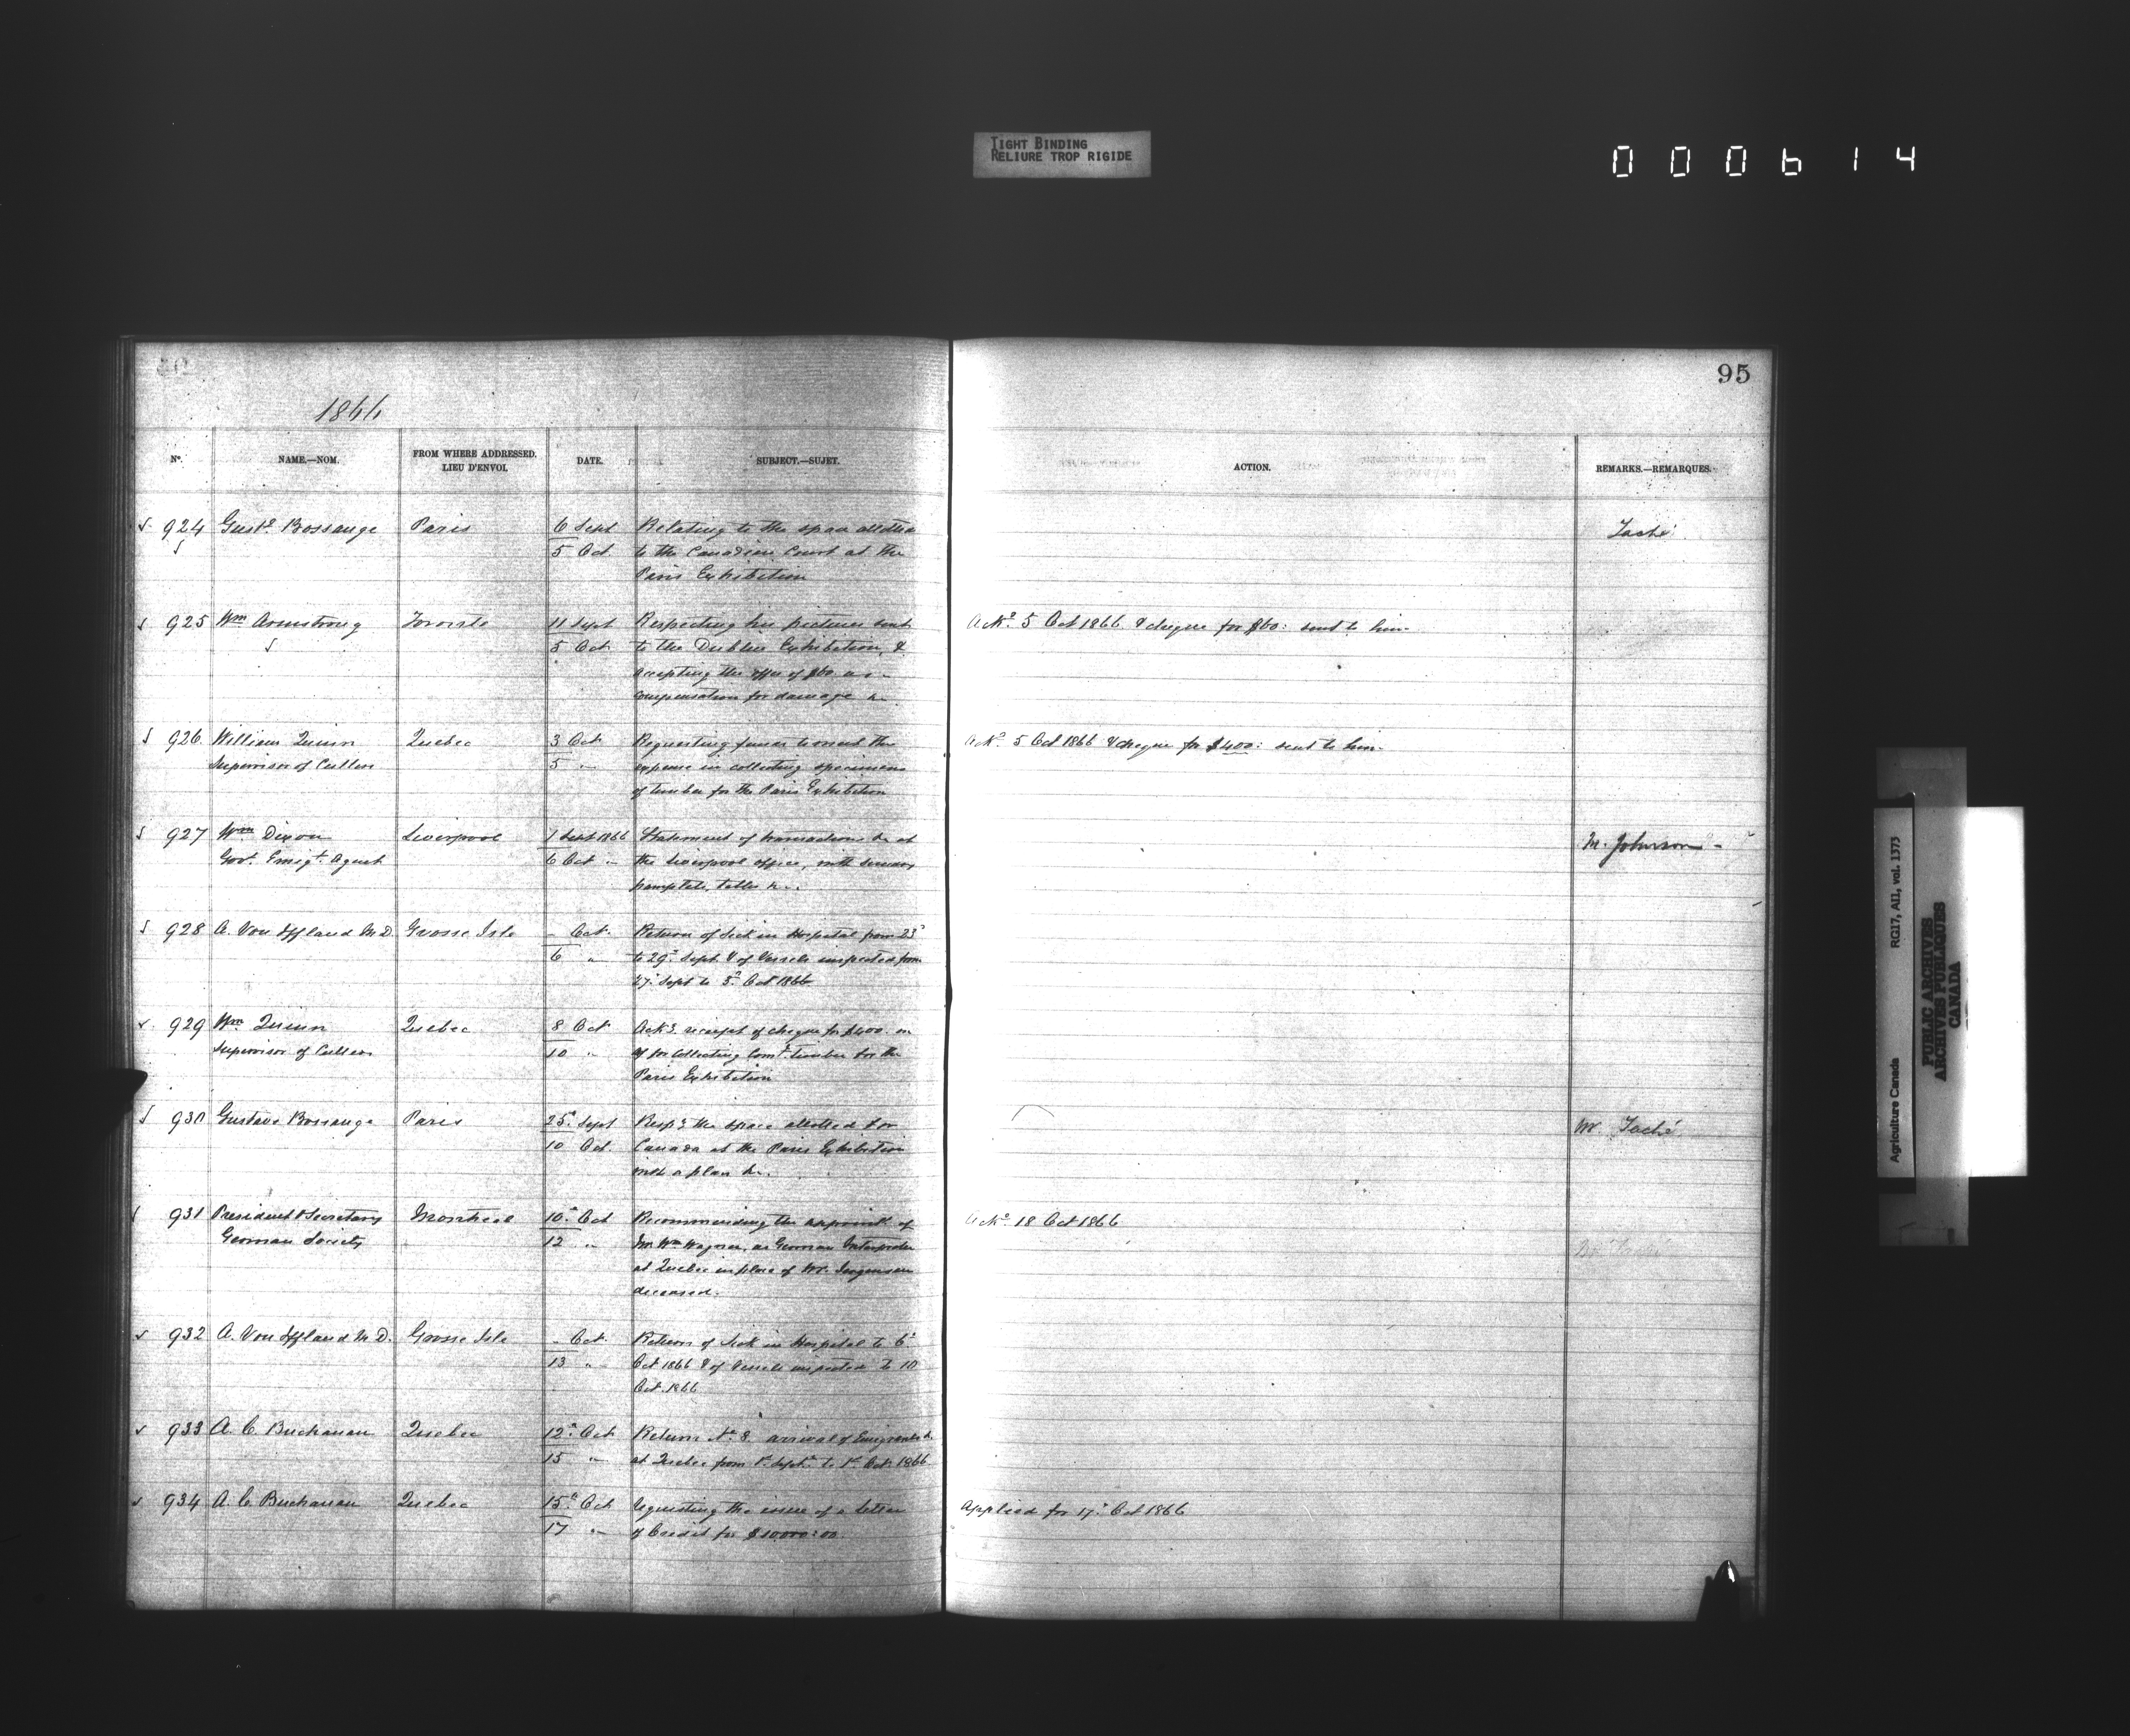 TIGHT BINDING
RELIURE TROP RIGIDE
000614
95
1866
No. NAME.—NOM. FROM WHERE ADDRESSED. LIEU D'ENVOI. DATE. SUBJECT.—SUJET. ACTION. REMARKS.—REMARQUES.
924 Gust. Bossange Paris 6 Sept Relating to the space allotted Taché
5 Oct to the Canadian Court at the
Paris Exhibition
925 Wm Armstrong Toronto 11 Sept Respecting his pictures sent Ackd. 5 Oct 1866 & cheque for $60: sent to him
5 Oct to the Dublin Exhibition, &
accepting the offer of $60 as
compensation for damage &c
926 William Quinn Quebec 3 Oct Requesting funds to meet the Ackd. 5 Oct 1866 & cheque for $400: sent to him
Supervisor of Cullers 5 " expense in collecting specimens
of timber for the Paris Exhibition
927 Wm Dixon Liverpool 1 Sept 1866 Statement of transactions &c at M. Johnson
Govt. Emigt. Agent 6 Oct " the Liverpool office, with
pamphlets, tables &c.
928 A. Von Iffland M.D. Grosse Isle – Oct. Return of Sick in Hospital from 23d
6 " to 29th Sept. & of Vessels inspected from
27 Sept to 5th Oct 1866
929 Wm Quinn Quebec 8 Oct Ackg. receipt of cheque for $400 on
Supervisor of Cullers 10 " a/c for collecting Timber for the
Paris Exhibition
930 Gustave Bossange Paris 25th Sept Respg the space allotted for Mr. Taché
10 Oct. Canada at the Paris Exhibition
with a plan &c.
931 President & Secretary Montreal 10th Oct Recommending the appoint. of Ackd. 18 Oct 1866
German Society 12 " Mr Wm Wagner, as German Interpreter
at Quebec in place of Mr. Jorgensen
deceased.
932 A. Von Iffland M.D. Grosse Isle – Oct. Return of Sick in Hospital to 6th
13 " Oct 1866 & of Vessels inspected to 10
Oct. 1866
933 A. C. Buchanan Quebec 12th Oct Return No. 8. arrival of Emigrants &c.
15 " at Quebec from 1st Sept. to 1st Oct. 1866
934 A. C. Buchanan Quebec 15th Oct Requesting the issue of a letter Applied for 17th Oct 1866
17 " of Credit for $10000:00
Agriculture Canada RG17, AII1, vol. 1373
PUBLIC ARCHIVES
ARCHIVES PUBLIQUES
CANADA